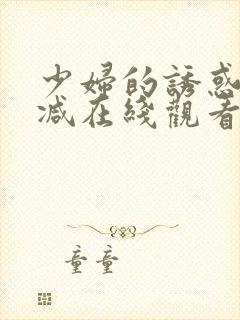 少婦的誘惑
减在綫觀看
童童